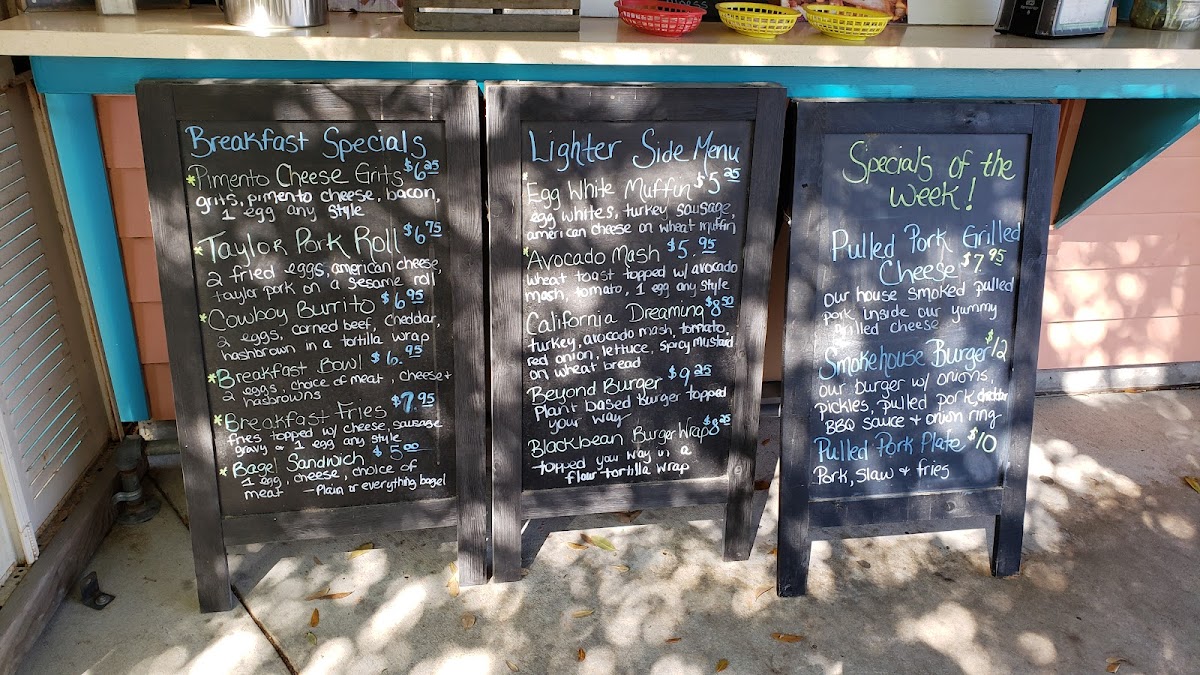 Breakfast Specials
*Pimento Cheese Grits $6.25
grits, pimento cheese, bacon,
1 egg any style
*Taylor Pork Roll $6.75
2 fried eggs, american cheese,
taylor pork on a sesame roll
*Cowboy Burrito $6.95
2 eggs, corned beef, cheddar,
hashbrown in a tortilla wrap
*Breakfast Bowl $6.95
2 eggs, choice of meat, cheese +
hasbrowns
*Breakfast Fries $7.95
fries topped w/ cheese, sausage
gravy & 1 egg any style
*Bagel Sandwich $5.00
1 egg, cheese, choice of
meat - Plain or everything bagel
Lighter Side Menu
Egg White Muffin $5.25
egg whites, turkey sausage,
american cheese on wheat muffin
*Avocado Mash $5.95
wheat toast topped w/ avocado
mash, tomato, 1 egg any style
California Dreaming $8.50
turkey, avocado mash, tomato,
red onion, lettuce, spicy mustard
on wheat bread
Beyond Burger $9.25
Plant based burger topped
your way
Blackbean Burger Wrap $8.25
topped your way in a
flour tortilla wrap
Specials of the
week!
Pulled Pork Grilled
Cheese $7.95
our house smoked pulled
pork inside our yummy
grilled cheese
Smokehouse Burger $12
our burger w/ onions,
pickles, pulled pork, cheddar
BBQ sauce + onion ring
Pulled Pork Plate $10
Pork, slaw + fries